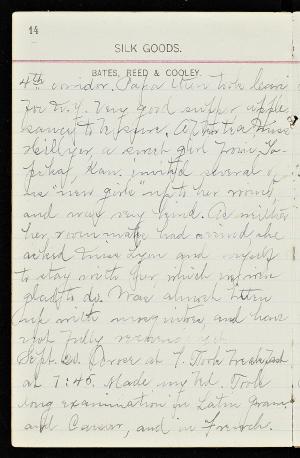 14
SILK GOODS.
BATES, REED & COOLEY.
4th corridor. Papa then took leave
for N.Y. Very good supper, apple
sauce to After tea Miss
Hillyer, a sweet girl from To-
peka, Kan. invited several of
us "new girls" up to her room,
and was very kind. As neither
her room mate had arrived, she
asked Miss Lyon and myself
to stay with her, which we were
glad to do. Was almost eaten
up with mosquitoes, and have
not fully recovered yet.
Sept. 20. Arose at 7. Took breakfast
at 7:45. Made my bed. Took
long examination in Latin Gram.
and Caesar, and in French.